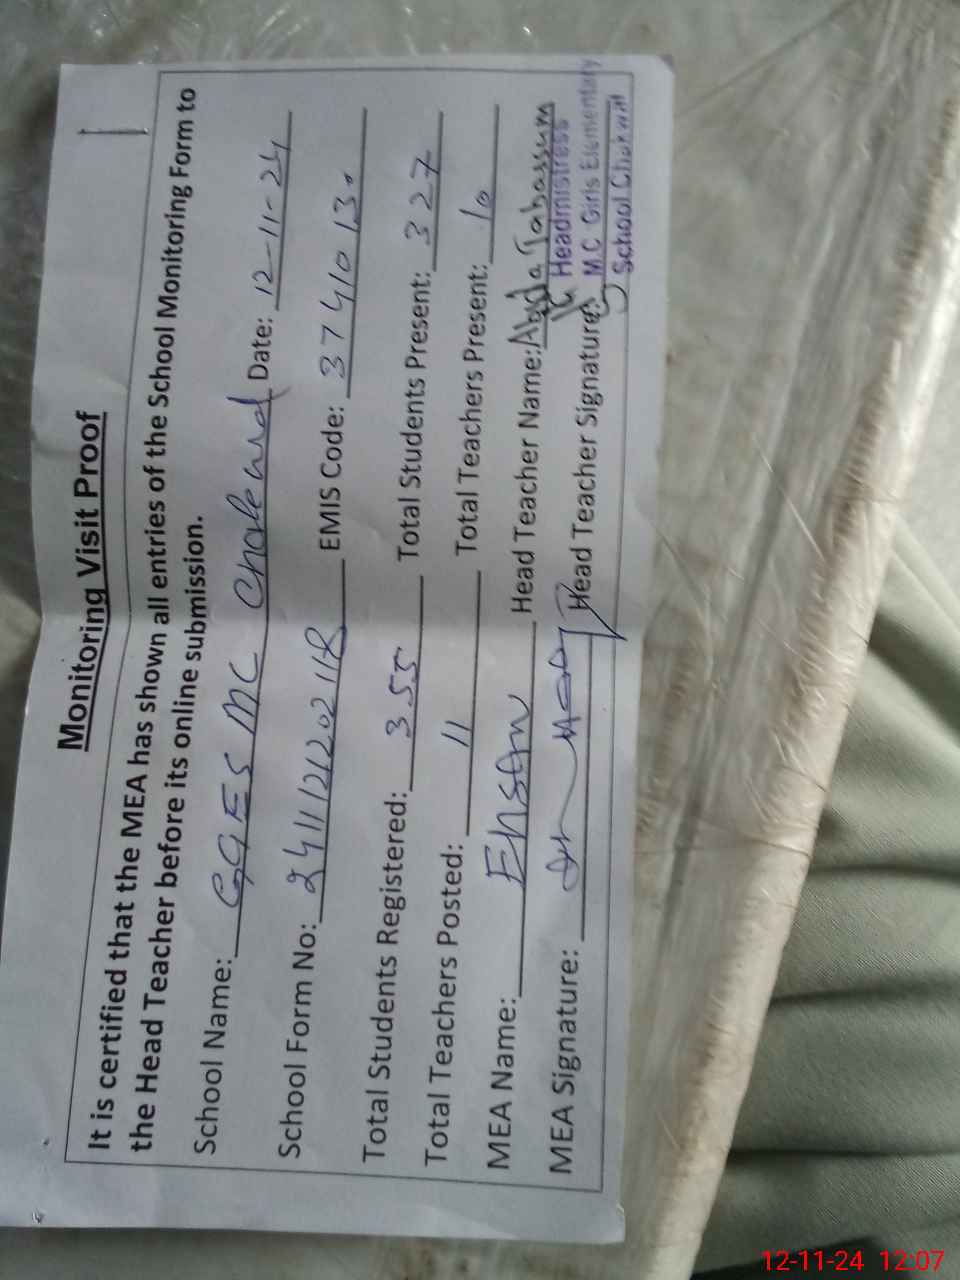 Monitoring Visit Proof
It is certified that the MEA has shown all entries of the School Monitoring Form to
the Head Teacher before its online submission.
School Name: GGES MC Date: 12-11-24
School Form No: EMIS Code: 37410130
Total Students Registered: 355 Total Students Present: 327
Total Teachers Posted: 11 Total Teachers Present: 10
MEA Name: Ehsan Head Teacher Name: Abida Tabassum
MEA Signature: Head Teacher Signature:
Headmistress
M.C Girls Elementary
School Chakwal
12-11-24 12:07